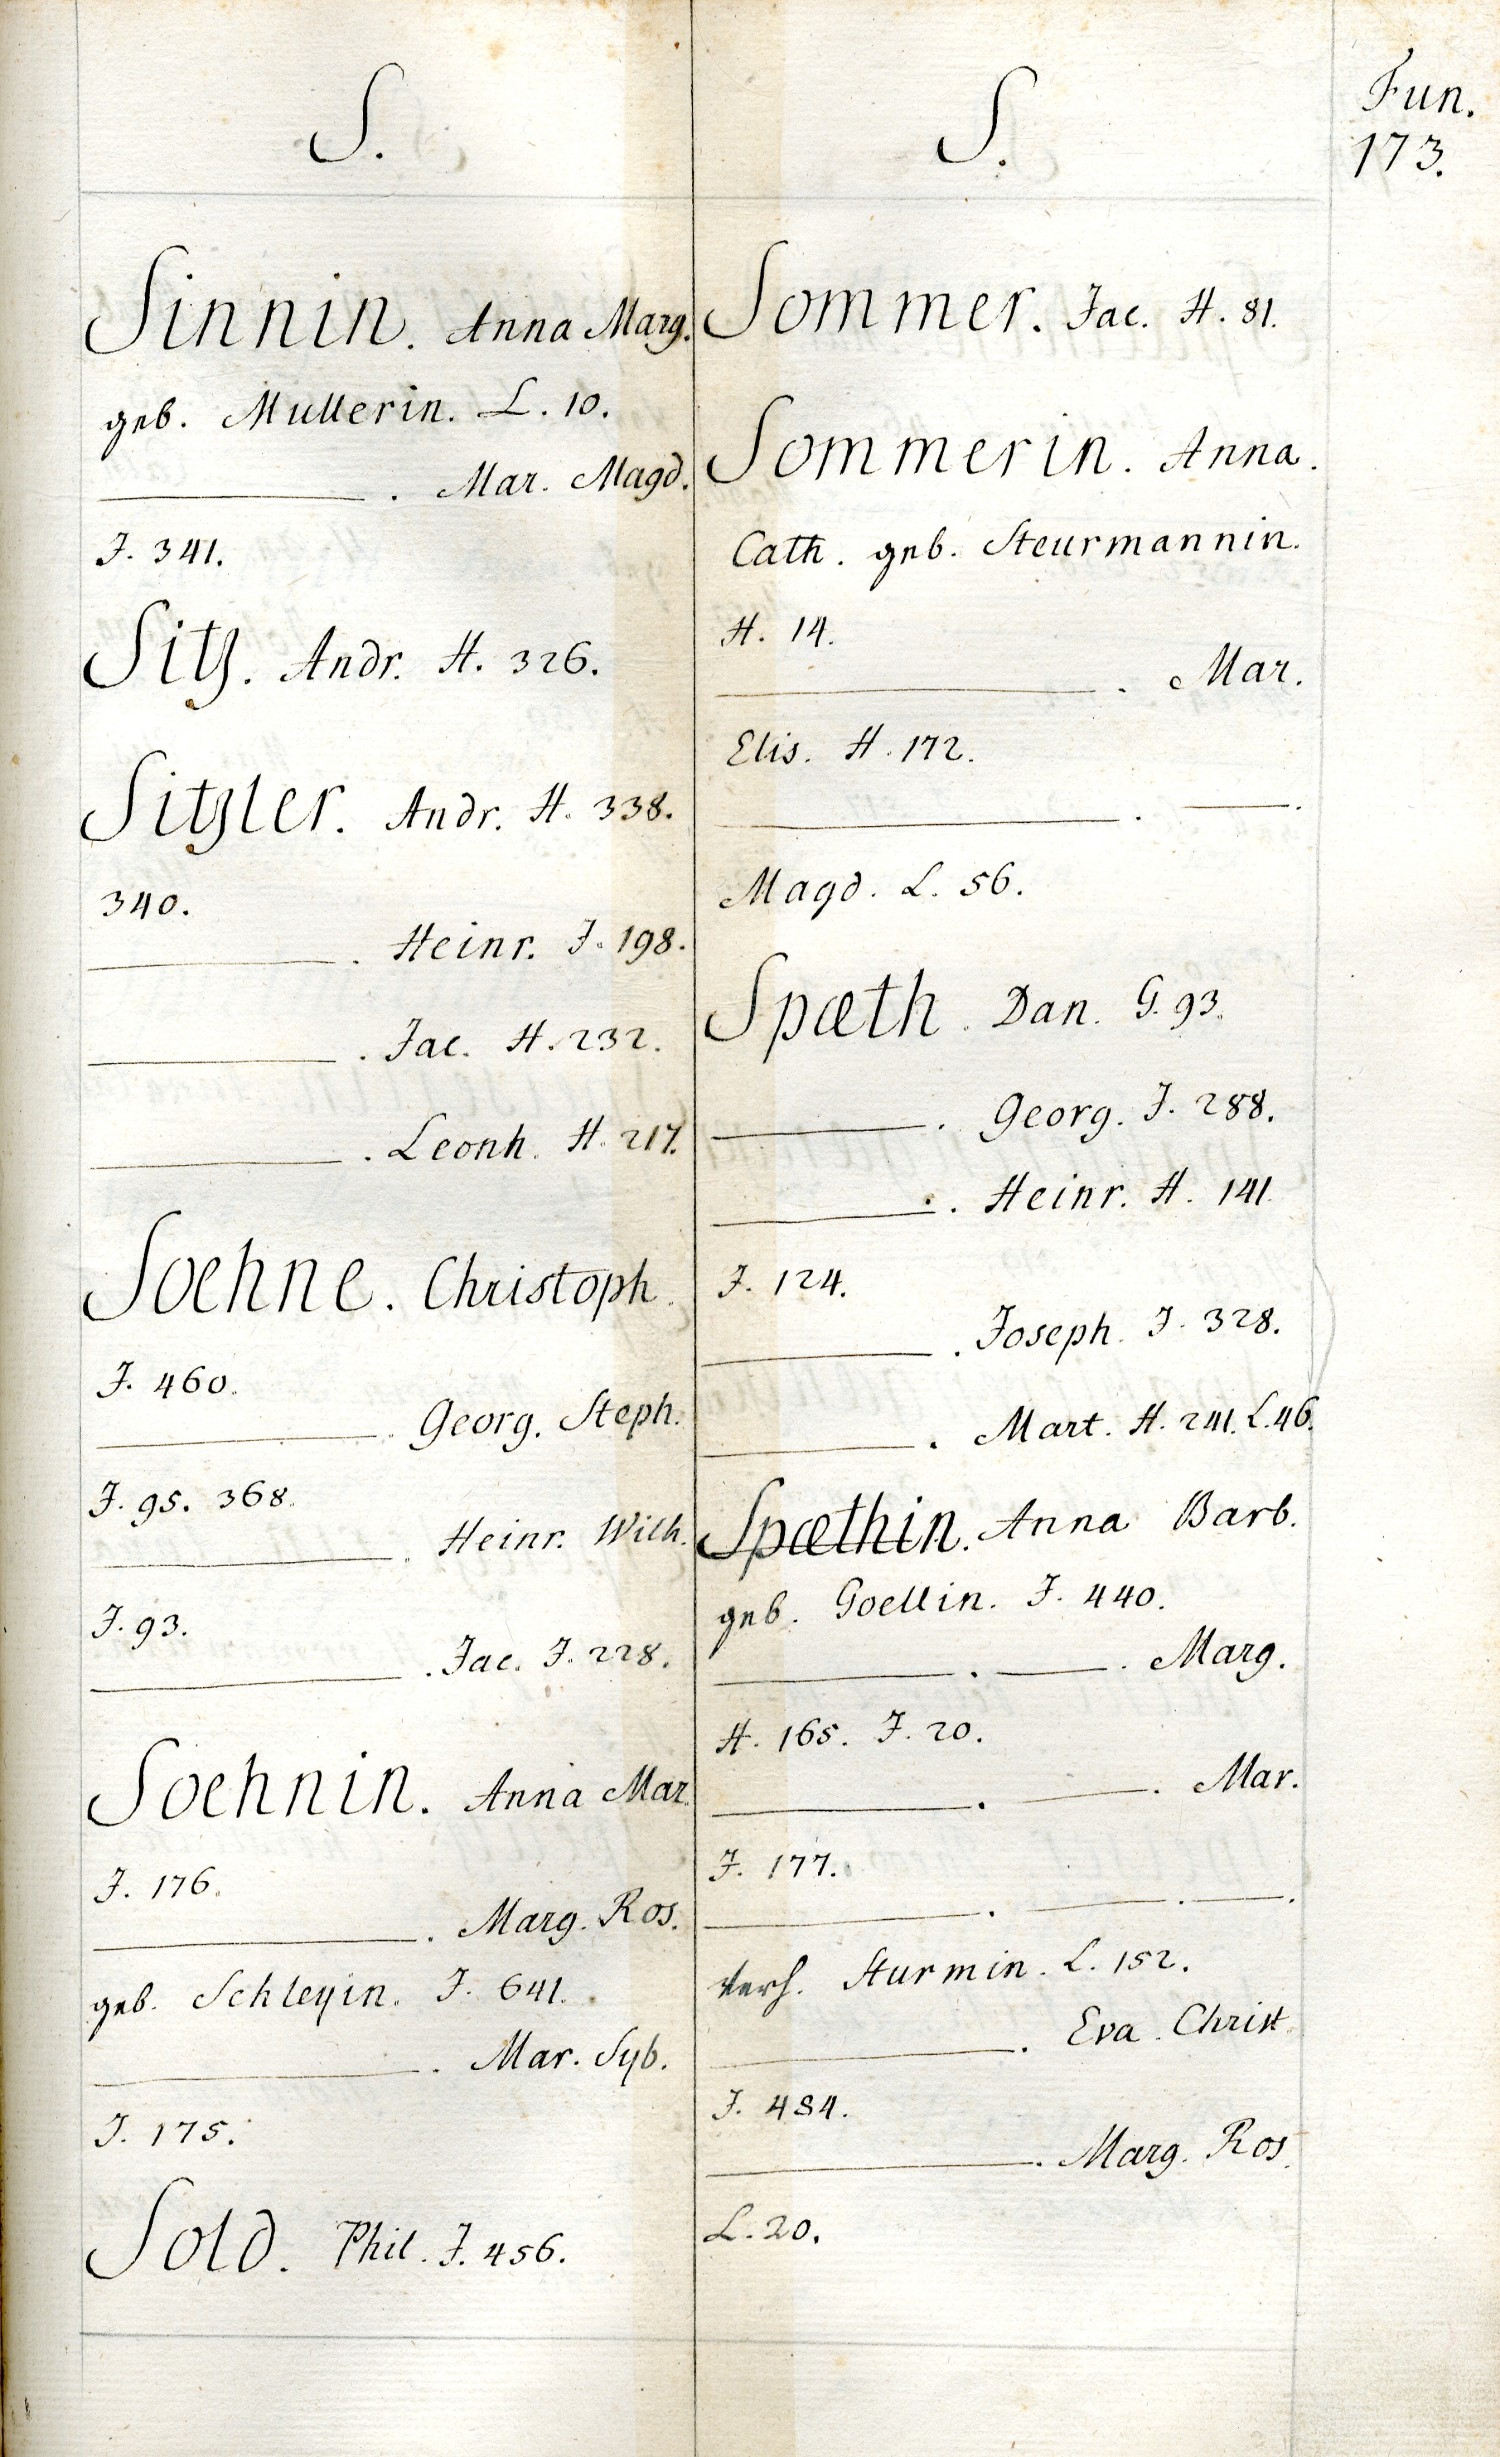 Fun.
173.
S.
Sinnin. Anna Marg.
geb. Mullerin. L. 10.
———. Mar. Magd.
J. 341.
Sitz. Andr. H. 326.
Sitzler. Andr. H. 338.
340.
———. Heinr. J. 198.
———. Jac. H. 232.
———. Leonh. H. 217.
Soehne. Christoph.
J. 460.
———. Georg. Steph.
J. 95. 368.
———. Heinr. Wilh.
J. 93.
———. Jac. J. 228.
Soehnin. Anna Mar.
J. 176.
———. Marg. Ros.
geb. Schleyin. J. 641.
———. Mar. Syb.
J. 175.
Sold. Phil. J. 456.
S.
Sommer. Jac. H. 81.
Sommerin. Anna.
Cath. geb. Steurmannin.
H. 14.
———. Mar.
Elis. H. 172.
———. ———.
Magd. L. 56.
Spæth. Dan. G. 93.
———. Georg. J. 288.
———. Heinr. H. 141.
J. 124.
———. Joseph. J. 328.
———. Mart. H. 241. L. 46.
Spæthin. Anna Barb.
geb. Goellin. J. 440.
———. ———. Marg.
H. 165. J. 20.
———. ———. Mar.
J. 177.
———. ———. ———.
verh. Sturmin. L. 152.
———. Eva. Christ.
J. 484.
———. Marg. Ros.
L. 20.